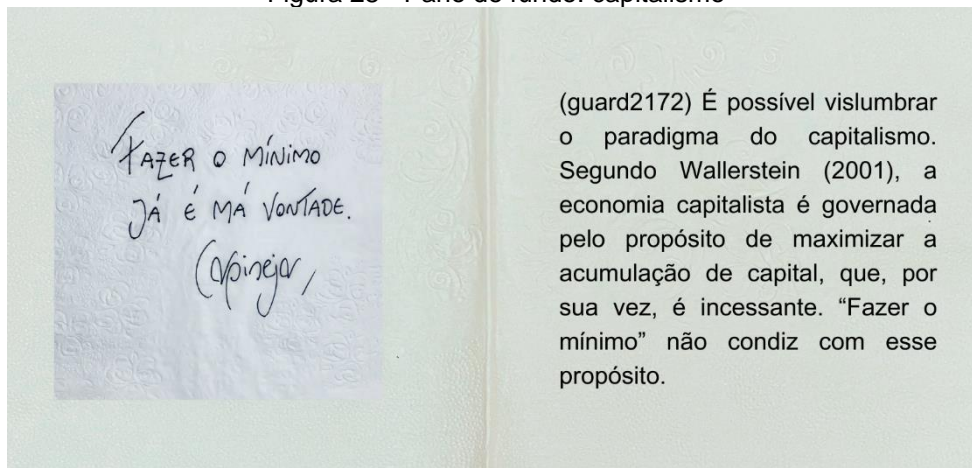 Figura 28 - Pano de fundo: capitalismo
FAZER O MÍNIMO
JÁ É MÁ VONTADE.
Carpinejar,
(guard2172) É possível vislumbrar
o paradigma do capitalismo.
Segundo Wallerstein (2001), a
economia capitalista é governada
pelo propósito de maximizar a
acumulação de capital, que, por
sua vez, é incessante. “Fazer o
mínimo” não condiz com esse
propósito.